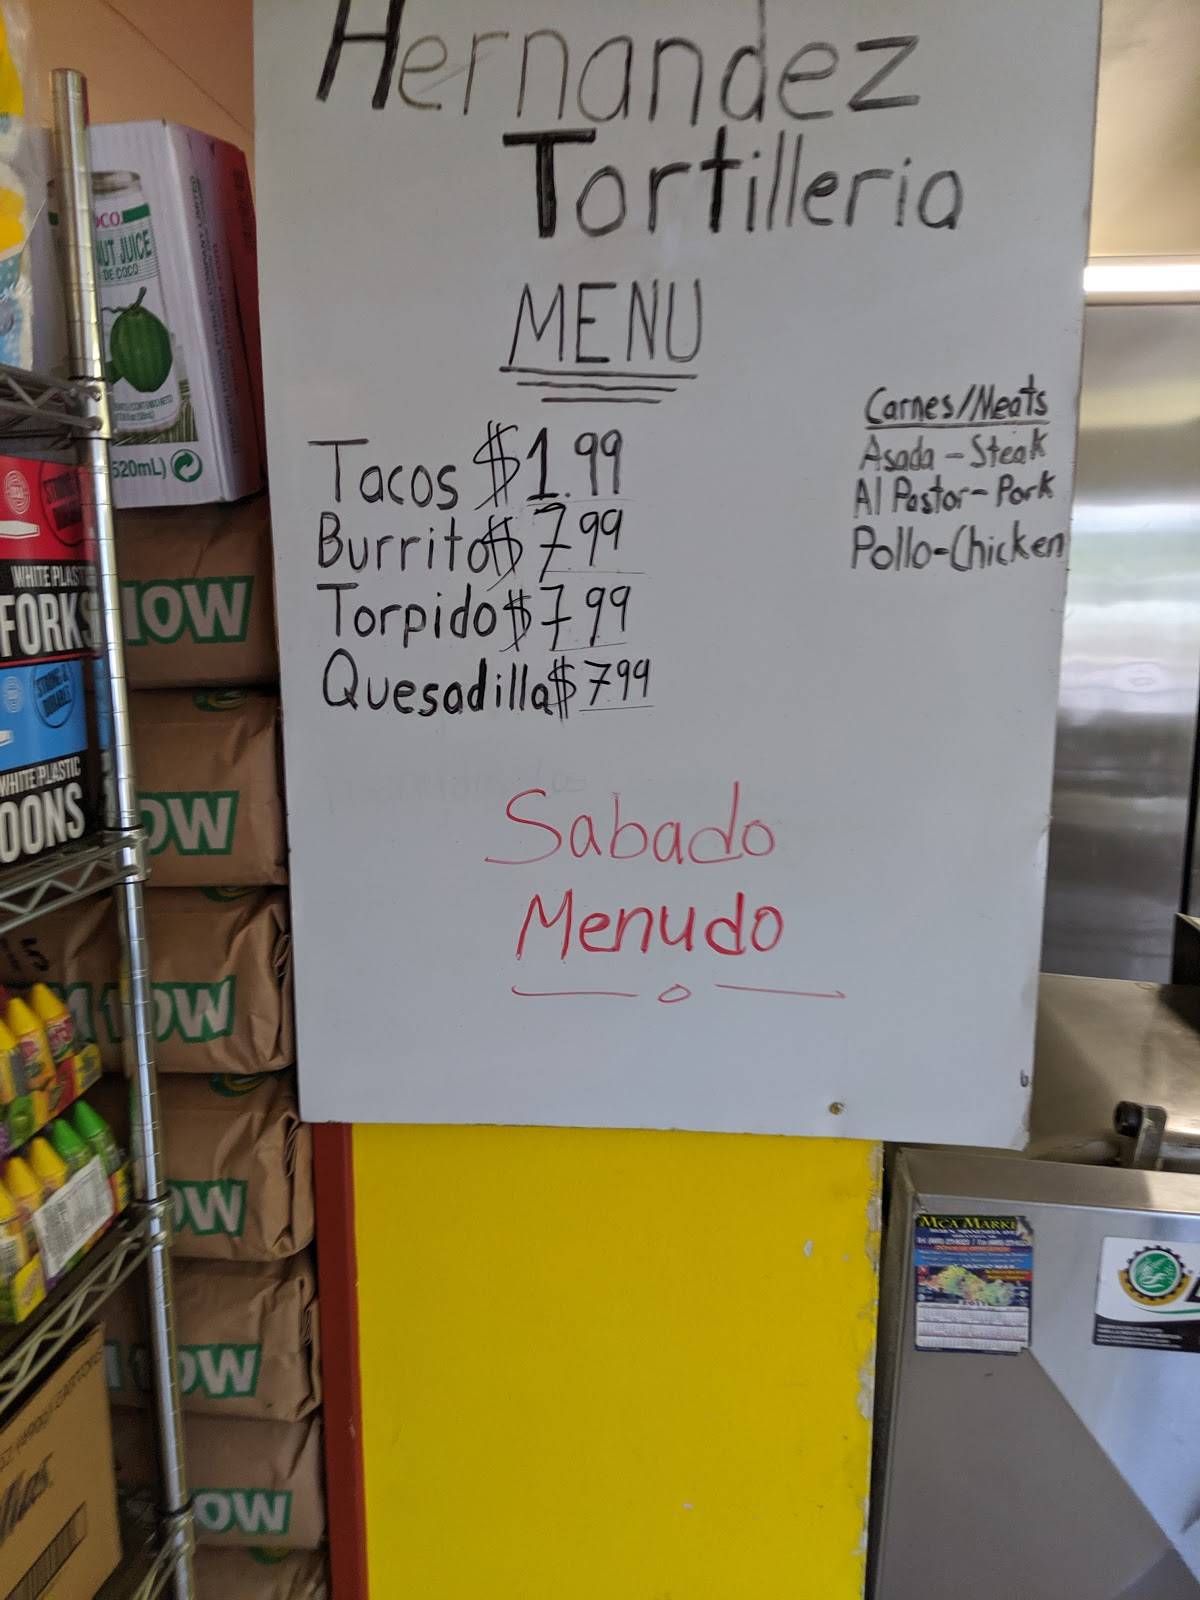 Hernandez
Tortilleria
MENU
Tacos $1.99
Burrito$ 7.99
Torpido $7.99
Quesadilla$ 7.99
Carnes/Meats
Asada - Steak
Al Pastor - Pork
Pollo - Chicken
Sabado
Menudo
CO
NUT JUICE
DE COCO
520mL)
WHITE PLAST
FORKS
STRONG &
DURABLE
WHITE PLASTIC
OONS
OW
OW
OW
OW
OW
OW
MCA MARKE